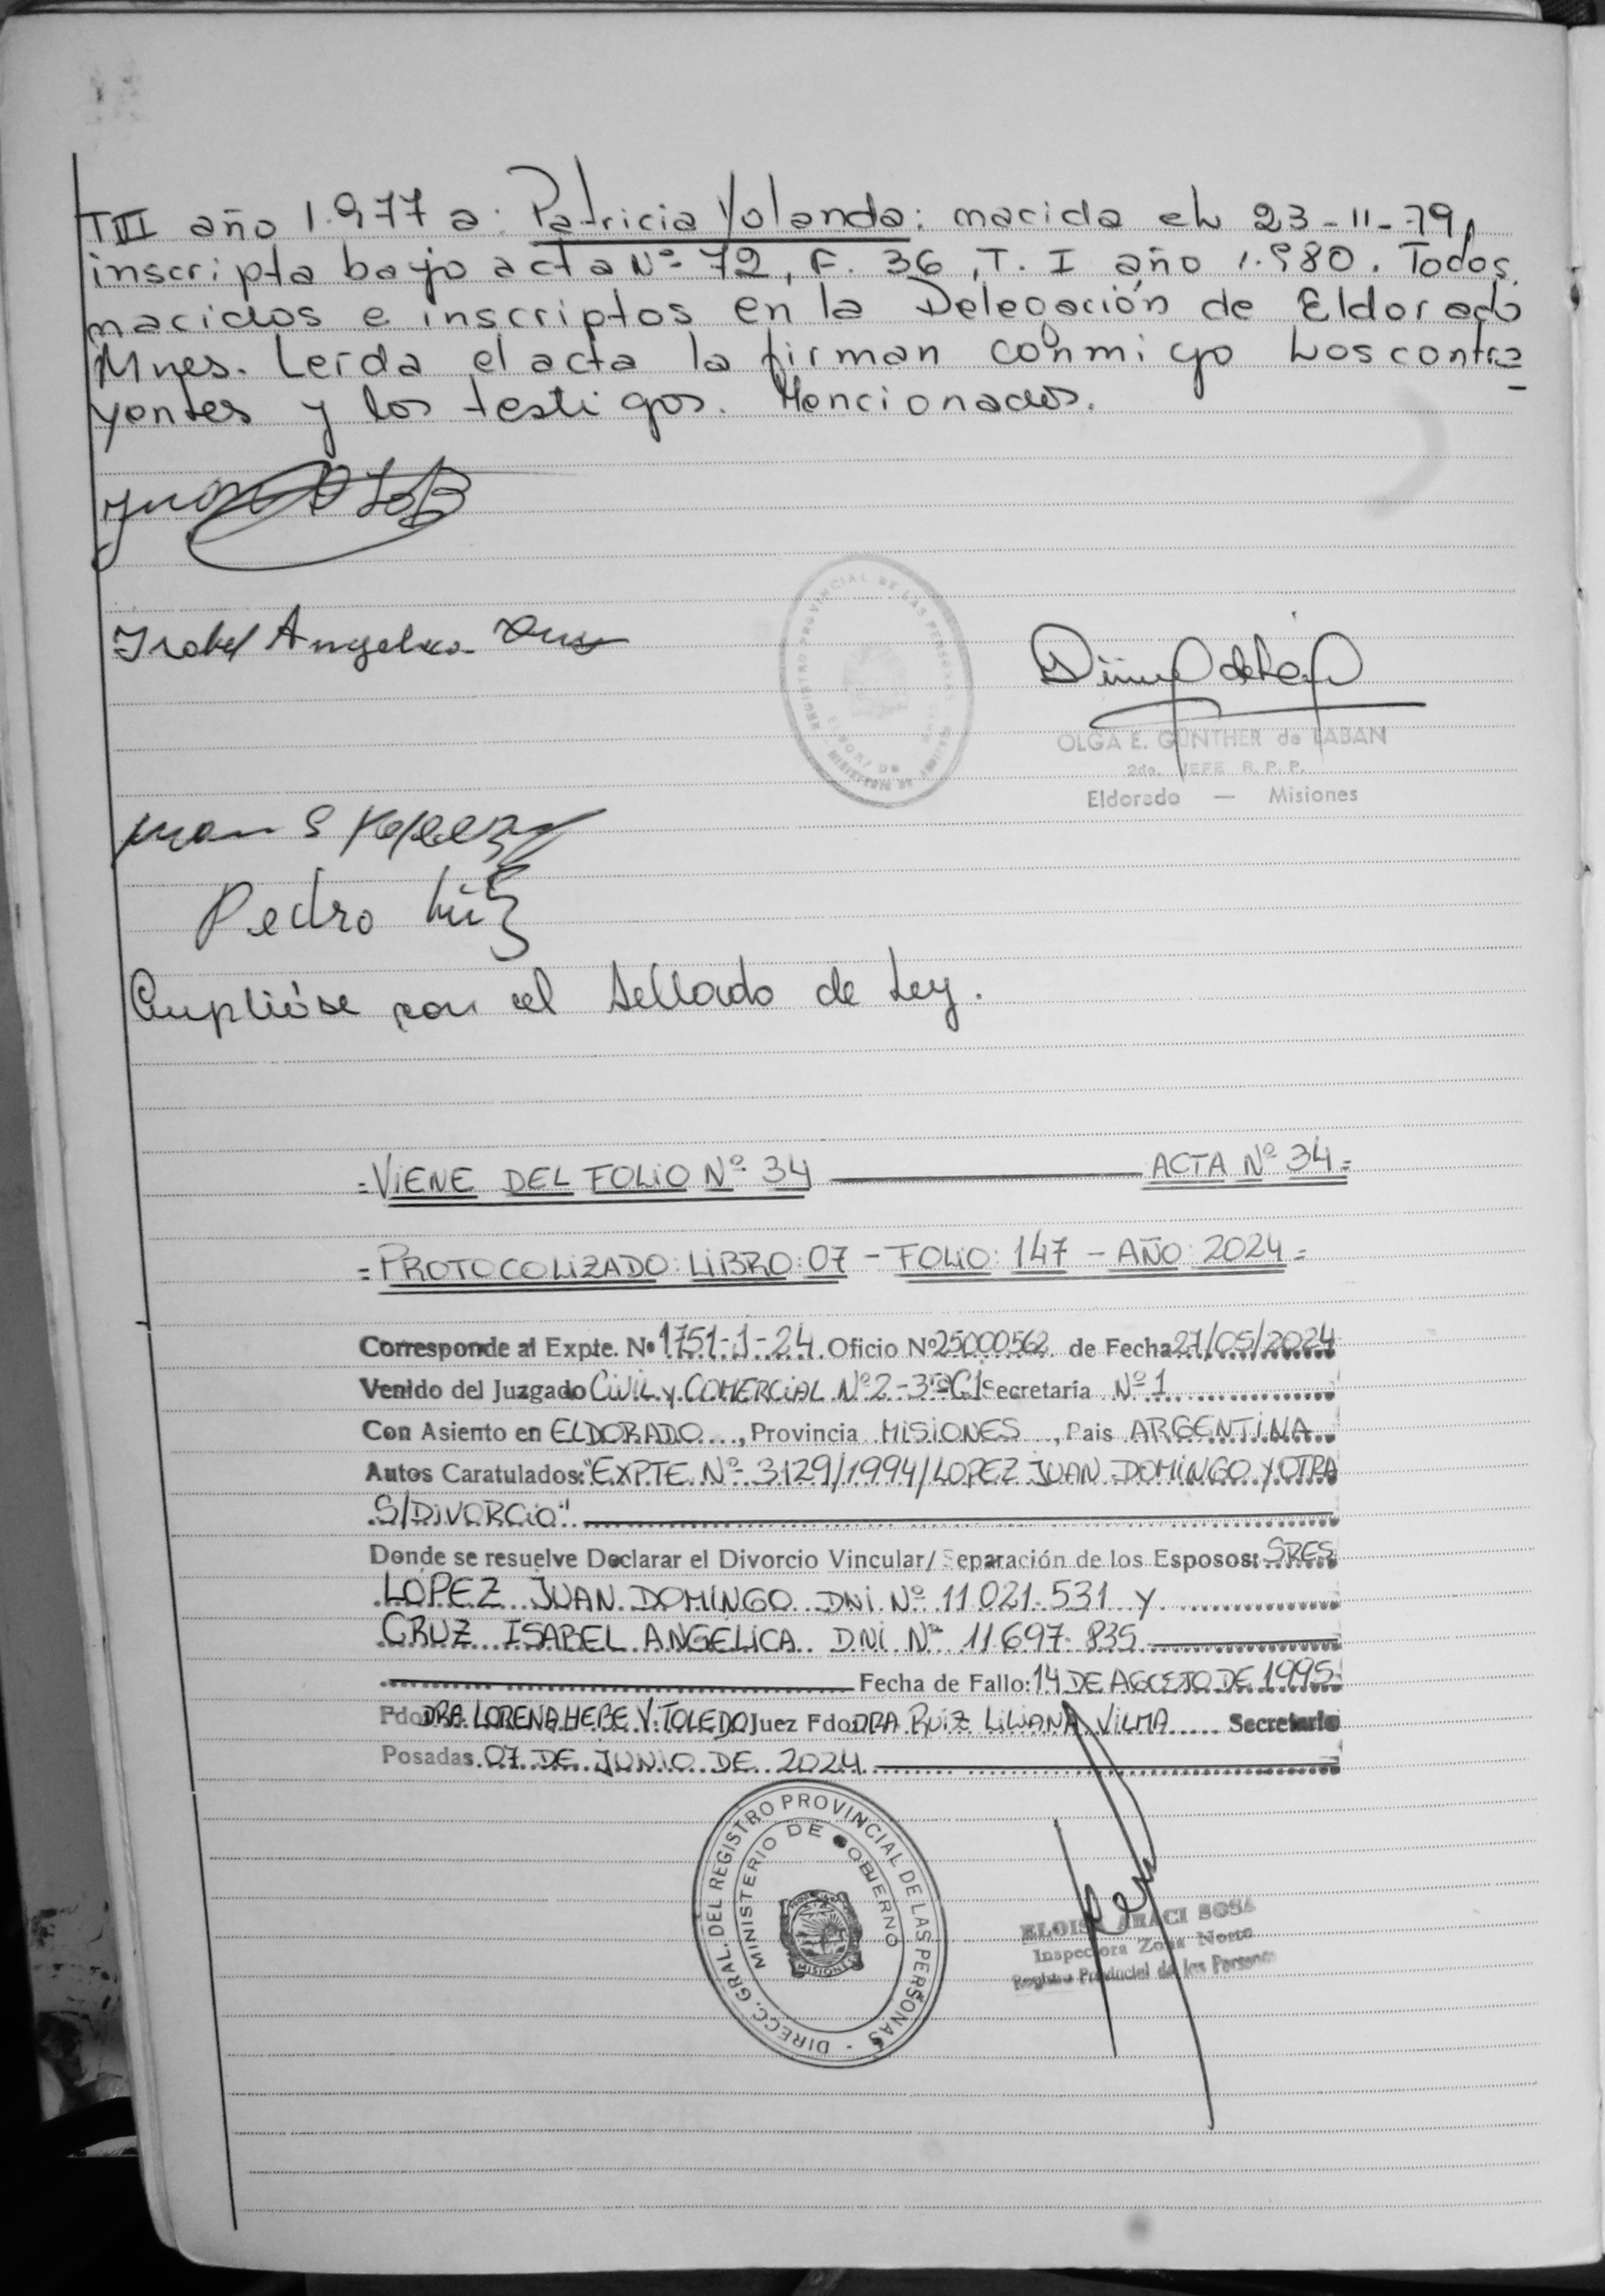 TIII año 1.977 a: Patricia Yolanda: nacida el 23-11-79,
inscripta bajo acta Nº 72, F. 36, T. I año 1.980. Todos
nacidos e inscriptos en la Delegación de Eldorado
Mnes. Leída el acta la firman conmigo los contra=
yentes y los testigos. Mencionados.
Juan D Lop
Isabel Angelica Cruz
REGISTRO PROVINCIAL DE LAS PERSONAS
ELDORADO
OLGA E. GÜNTHER de LABAN
2da. JEFE R. P. P.
Eldorado — Misiones
Juan S
Pedro
Cumplióse con el Sellado de Ley.
=VIENE DEL FOLIO Nº 34 ACTA Nº 34=
=PROTOCOLIZADO: LIBRO: 07 - FOLIO: 147 - AÑO: 2024=
Corresponde al Expte. Nº 1751-1-24 Oficio Nº 25000562 de Fecha 27/05/2024
Venido del Juzgado CIVIL y COMERCIAL Nº 2 - 3ra CJ Secretaría Nº 1
Con Asiento en ELDORADO, Provincia MISIONES, Pais ARGENTINA
Autos Caratulados: "EXPTE Nº 3129/1994/LOPEZ JUAN DOMINGO Y OTRA
S/DIVORCIO"
Donde se resuelve Declarar el Divorcio Vincular/Separación de los Esposos: SRES
LOPEZ JUAN DOMINGO DNI Nº 11 021.531 Y
CRUZ ISABEL ANGELICA DNI Nº 11 697.835
Fecha de Fallo: 14 DE AGOSTO DE 1995
Fdo DRA LORENA HEBE V. TOLEDO Juez Fdo DRA RUIZ LILIANA VILMA Secretario
Posadas 07 DE JUNIO DE 2024
DIRECC. GRAL. DEL REGISTRO PROVINCIAL DE LAS PERSONAS
MINISTERIO DE GOBIERNO
MISIONES
ELOISA ARACI SOSA
Inspectora Zona Norte
Registro Provincial de las Personas